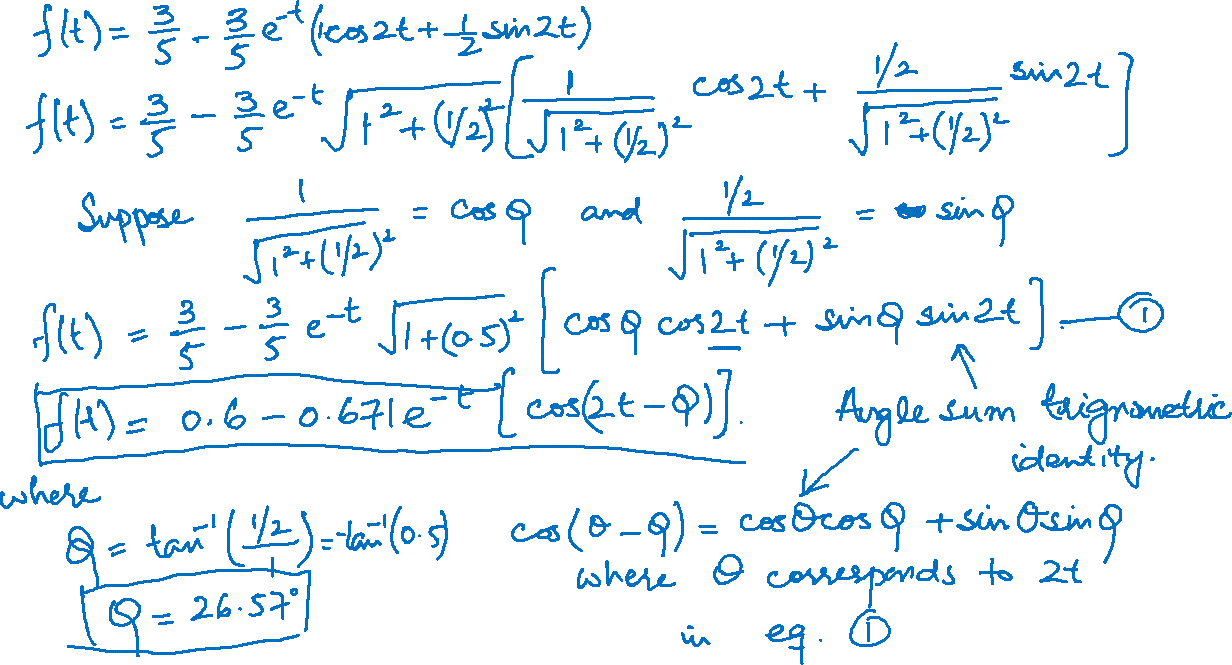 f(t) = 3/5 - 3/5 e^-t (1cos2t + 1/2 sin2t)
f(t) = 3/5 - 3/5 e^-t √(1²+(1/2)²) [ 1/√(1²+(1/2)²) cos2t + (1/2)/√(1²+(1/2)²) sin2t ]
Suppose 1/√(1²+(1/2)²) = cosφ and (1/2)/√(1²+(1/2)²) = sinφ
f(t) = 3/5 - 3/5 e^-t √(1+(0.5)²) [ cosφ cos2t + sinφ sin2t ] — ①
f(t) = 0.6 - 0.671e^-t [ cos(2t-φ) ].
Angle sum trignometric
identity.
where
φ = tan⁻¹((1/2)/1) = tan⁻¹(0.5)
φ = 26.57°
cos(θ-φ) = cosθcosφ + sinθsinφ
where θ corresponds to 2t
in eq. ①